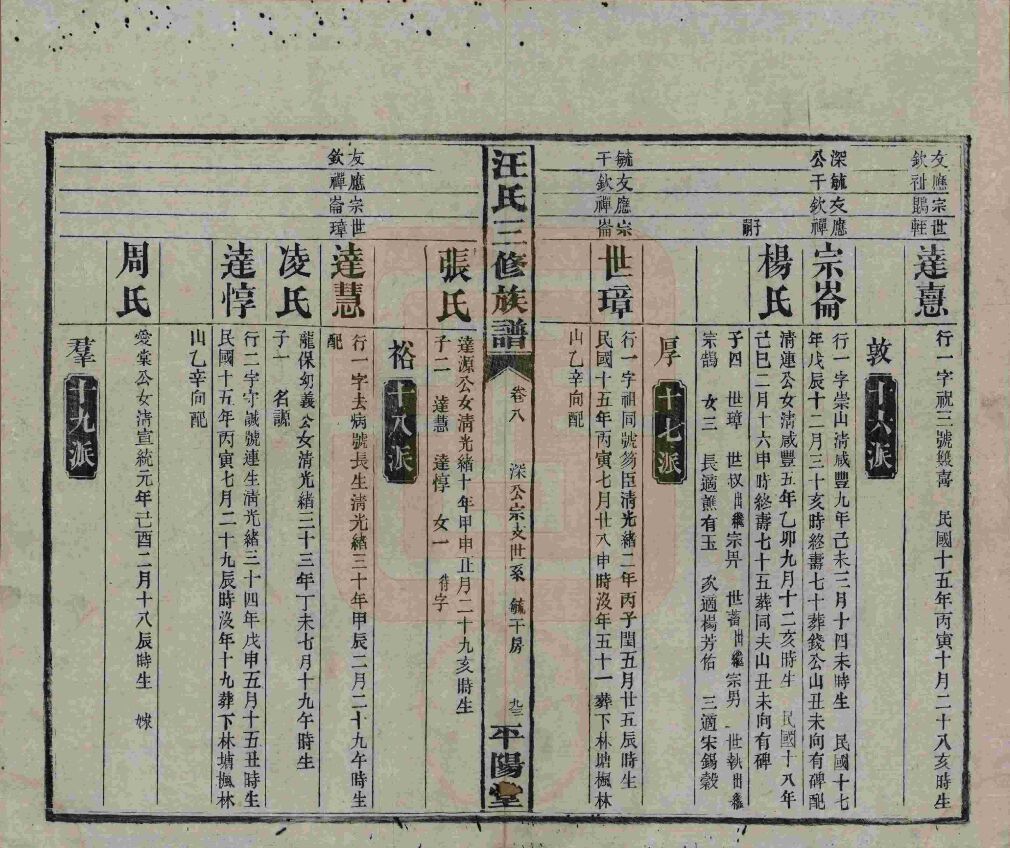 友應宗世
欽祉鵾輊
達憙
行一字祝三號雙喜　民國十五年丙寅十月二十八亥時生
敦
十六派
深毓友應
公干欽禪
宗崙
行一字崇山清咸豐九年己未三月十四未時生　民國十七
年戊辰十二月三十亥時終壽七十葬錢公山丑未向有碑配
嗣子
楊氏
清連公女清咸豐五年乙卯九月十二亥時生　民國十八年
己巳二月十六申時終壽七十五葬同夫山丑未向有碑
子四　世璋　世杈出繼宗昇　世蓄出繼宗男　世執出繼
宗鵠　女三　長適蕭有玉　次適楊芳佑　三適宋錫穀
厚
十七派
毓友應宗
干欽禪崙
世璋
行一字祖同號笏臣清光緒二年丙子閏五月廿五辰時生
民國十五年丙寅七月廿八申時沒年五十一葬下林塘楓林
山乙辛向配
汪氏三修族譜
卷八
深公宗支世系
毓干房
九三
平陽堂
張氏
達源公女清光緒十年甲申正月二十九亥時生
子二　達慧　達惇　女一　待字
裕
十八派
友應宗世
欽禪崙璋
達慧
行一字去病號長生清光緒三十年甲辰二月二十九午時生
配
凌氏
龍保幼義公女清光緒三十三年丁未七月十九午時生
子一　名謜
達惇
行二字守誠號連生清光緒三十四年戊申五月十五丑時生
民國十五年丙寅七月二十九辰時沒年十九葬下林塘楓林
山乙辛向配
周氏
愛棠公女清宣統元年己酉二月十八辰時生　嫁
羣
十九派